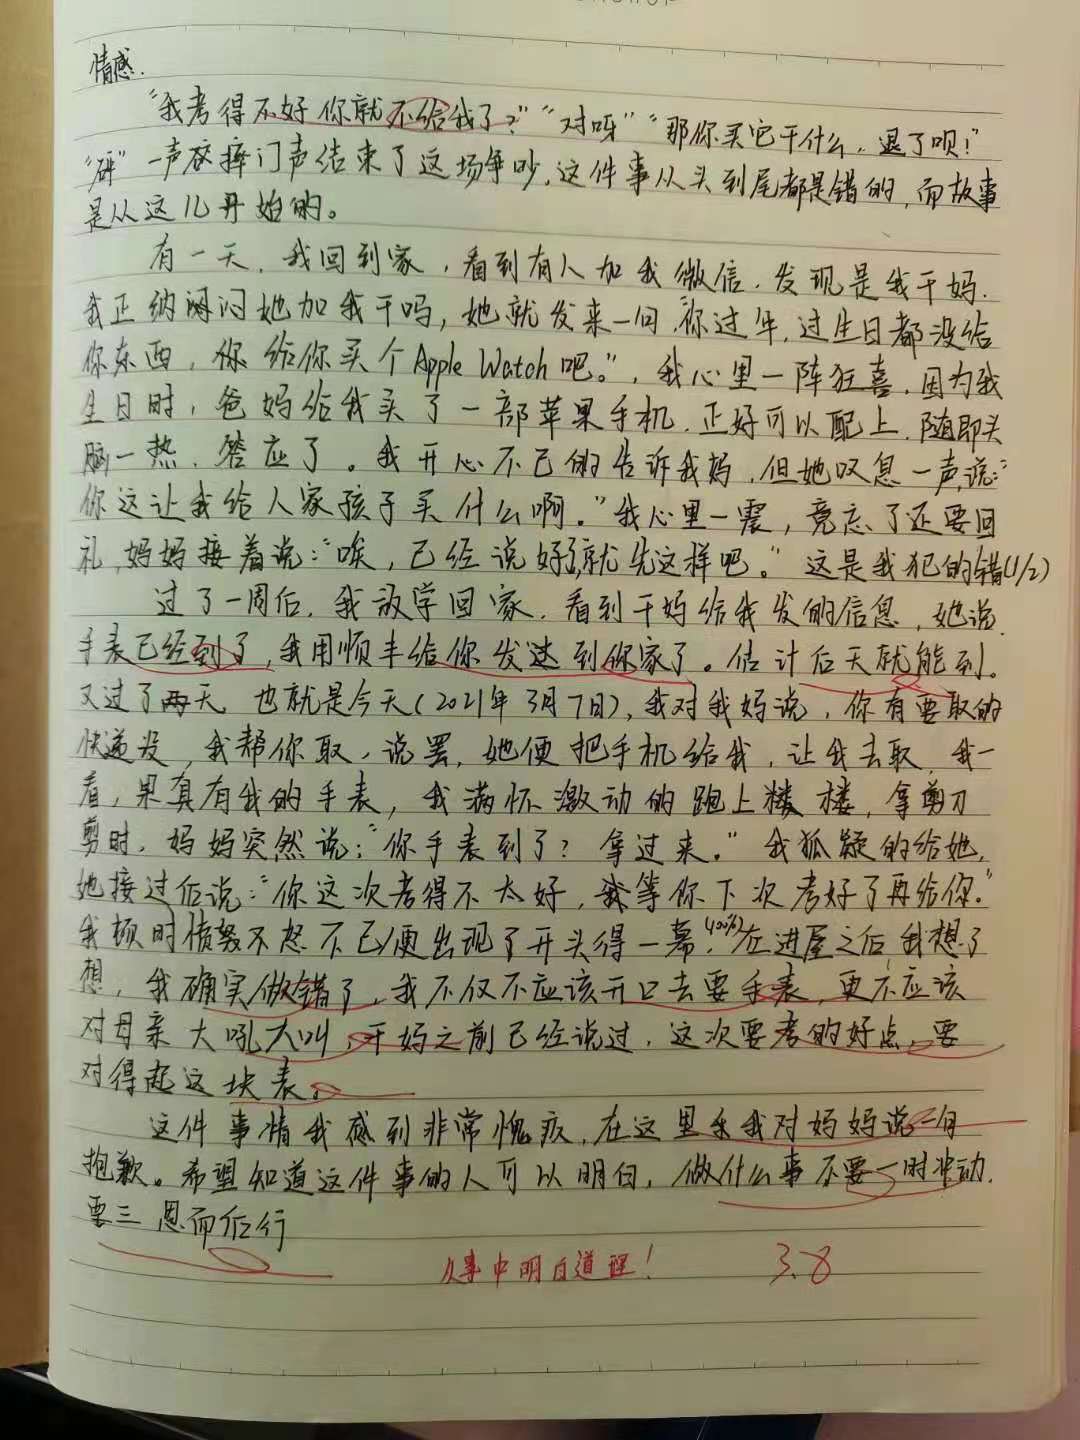 情感.
“我考得不好你就不给我了?”“对呀”“那你买它干什么,退了呗!”
“砰”一声摔门声结束了这场争吵,这件事从头到尾都是错的,而故事
是从这儿开始的。
有一天,我回到家,看到有人加我微信,发现是我干妈.
我正纳闷她加我干吗,她就发来一句,“你过年,过生日都没给
你东西,你给你买个Apple Watch吧。”,我心里一阵狂喜,因为我
生日时,爸妈给我买了一部苹果手机,正好可以配上,随即头
脑一热,答应了。我开心不已的告诉我妈,但她叹息一声,说:“
你这让我给人家孩子买什么啊。”我心里一震,竟忘了还要回
礼,妈妈接着说:“唉,已经说好了,就先这样吧。”这是我犯的错(1/2)
过了一周后,我放学回家,看到干妈给我发的信息,她说,
手表已经到了,我用顺丰给你发送到你家了。估计后天就能到.
又过了两天,也就是今天(2021年3月7日),我对我妈说,你有要取的
快递没,我帮你取,说罢,她便把手机给我,让我去取,我一
看,果真有我的手表,我满怀激动的跑上楼,拿剪刀
剪时,妈妈突然说:“你手表到了?拿过来。”我狐疑的给她,
她接过后说:“你这次考得不太好,我等你下次考好了再给你.”
我顿时愤怒不已,便出现了开头得一幕,(400字)在进屋之后,我想了
想,我确实做错了,我不仅不应该开口去要手表,更不应该
对母亲大吼大叫,干妈之前已经说过,这次要考的好点,要
对得起这块表。
这件事情我感到非常愧疚,在这里我对妈妈说一句
抱歉。希望知道这件事的人可以明白,做什么事不要一时冲动.
要三思而后行
从事中明白道理! 3.8